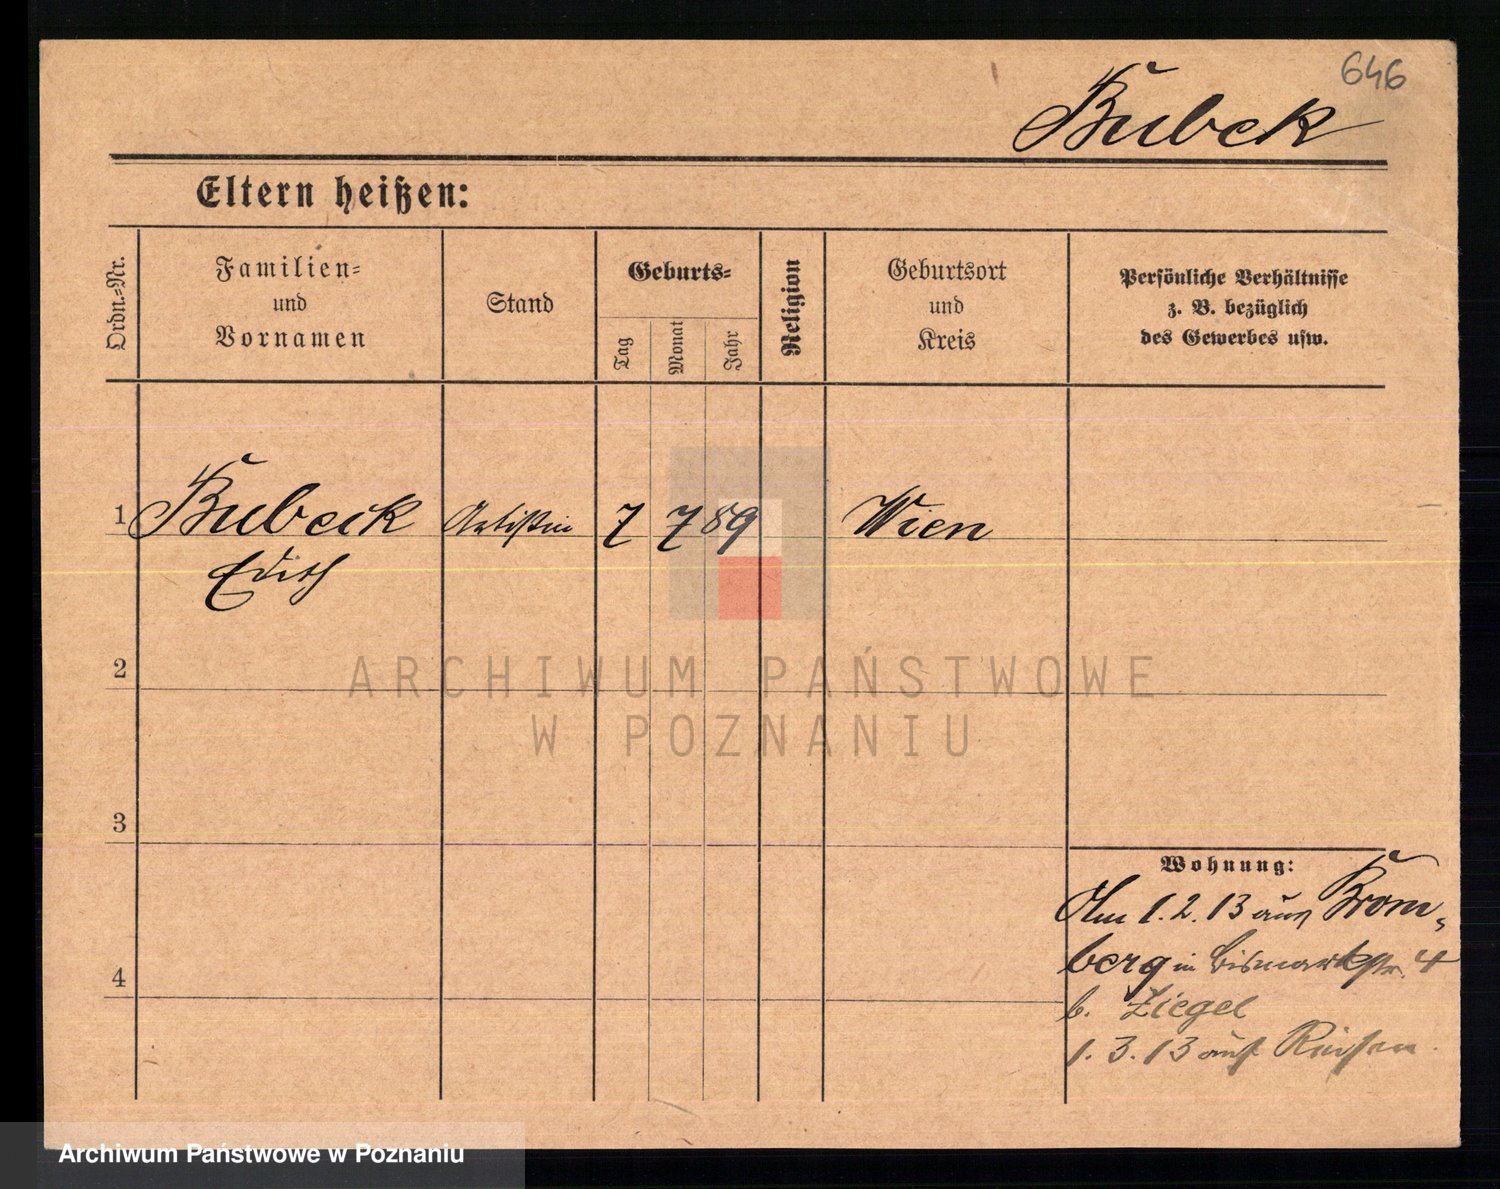 646
Bubeck
Eltern heißen:
Ordn.=Nr.
Familien=
und
Vornamen
Stand
Geburts=
Tag
Monat
Jahr
Religion
Geburtsort
und
Kreis
Persönliche Verhältnisse
z. B. bezüglich
des Gewerbes usw.
1 Bubeck Artistin 7 7 89 Wien
Edith
2
3
4
Wohnung:
Am 1.2.13 aus Brom-
berg in Bismarkstr. 4
b. Ziegel
1.3.13 auf Reisen.
ARCHIWUM PAŃSTWOWE
W POZNANIU
Archiwum Państwowe w Poznaniu